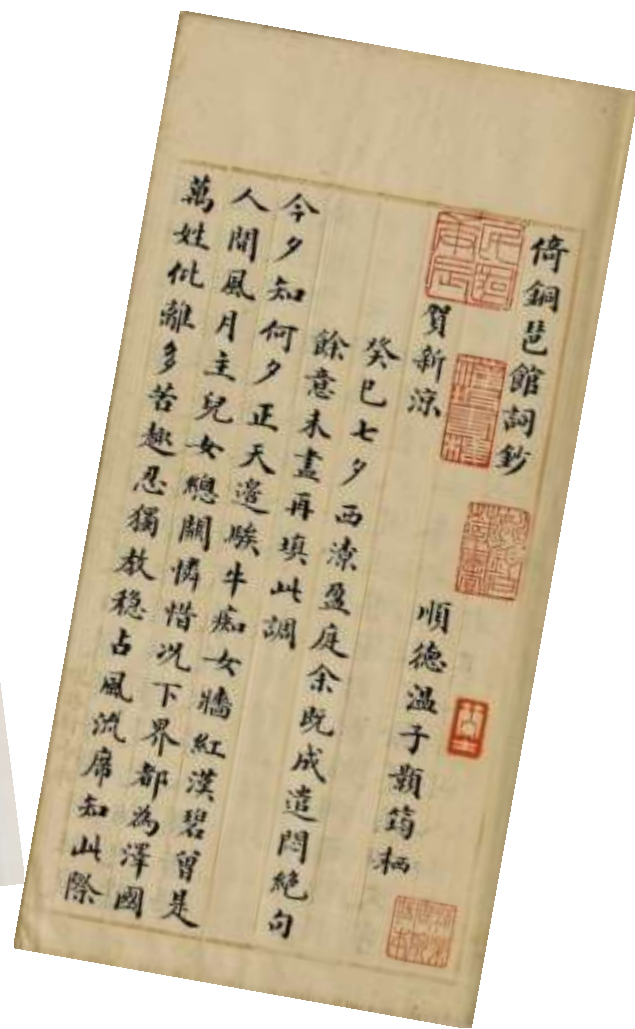 倚銅邑館詞鈔
順德溫子顥筠栖
賀新涼
癸巳七夕西潦盈庭余既成遣悶絶句
餘意未盡再填此調
今夕知何夕正天邊騃牛痴女牆紅漢碧曾是
人間風月主兒女總關憐惜況下界都為澤國
萬姓仳離多苦趣忍獨教穩占風流席知此際